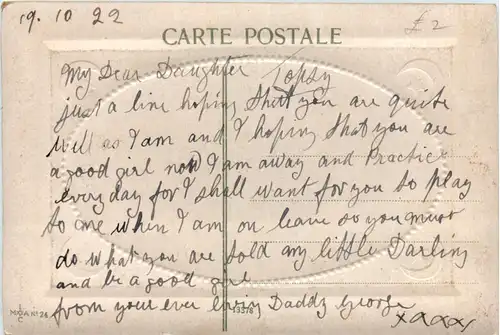 19. 10 22
£2
CARTE POSTALE
My Dear Daughter Topsy
just a line hoping that you are quite
well as I am and I hoping that you are
a good girl now I am away and Practice
every day for I shall want for you to play
to me when I am on leave so you must
do what you are told my little Darling
and be a good girl
from your ever loving Daddy George
xxxxx